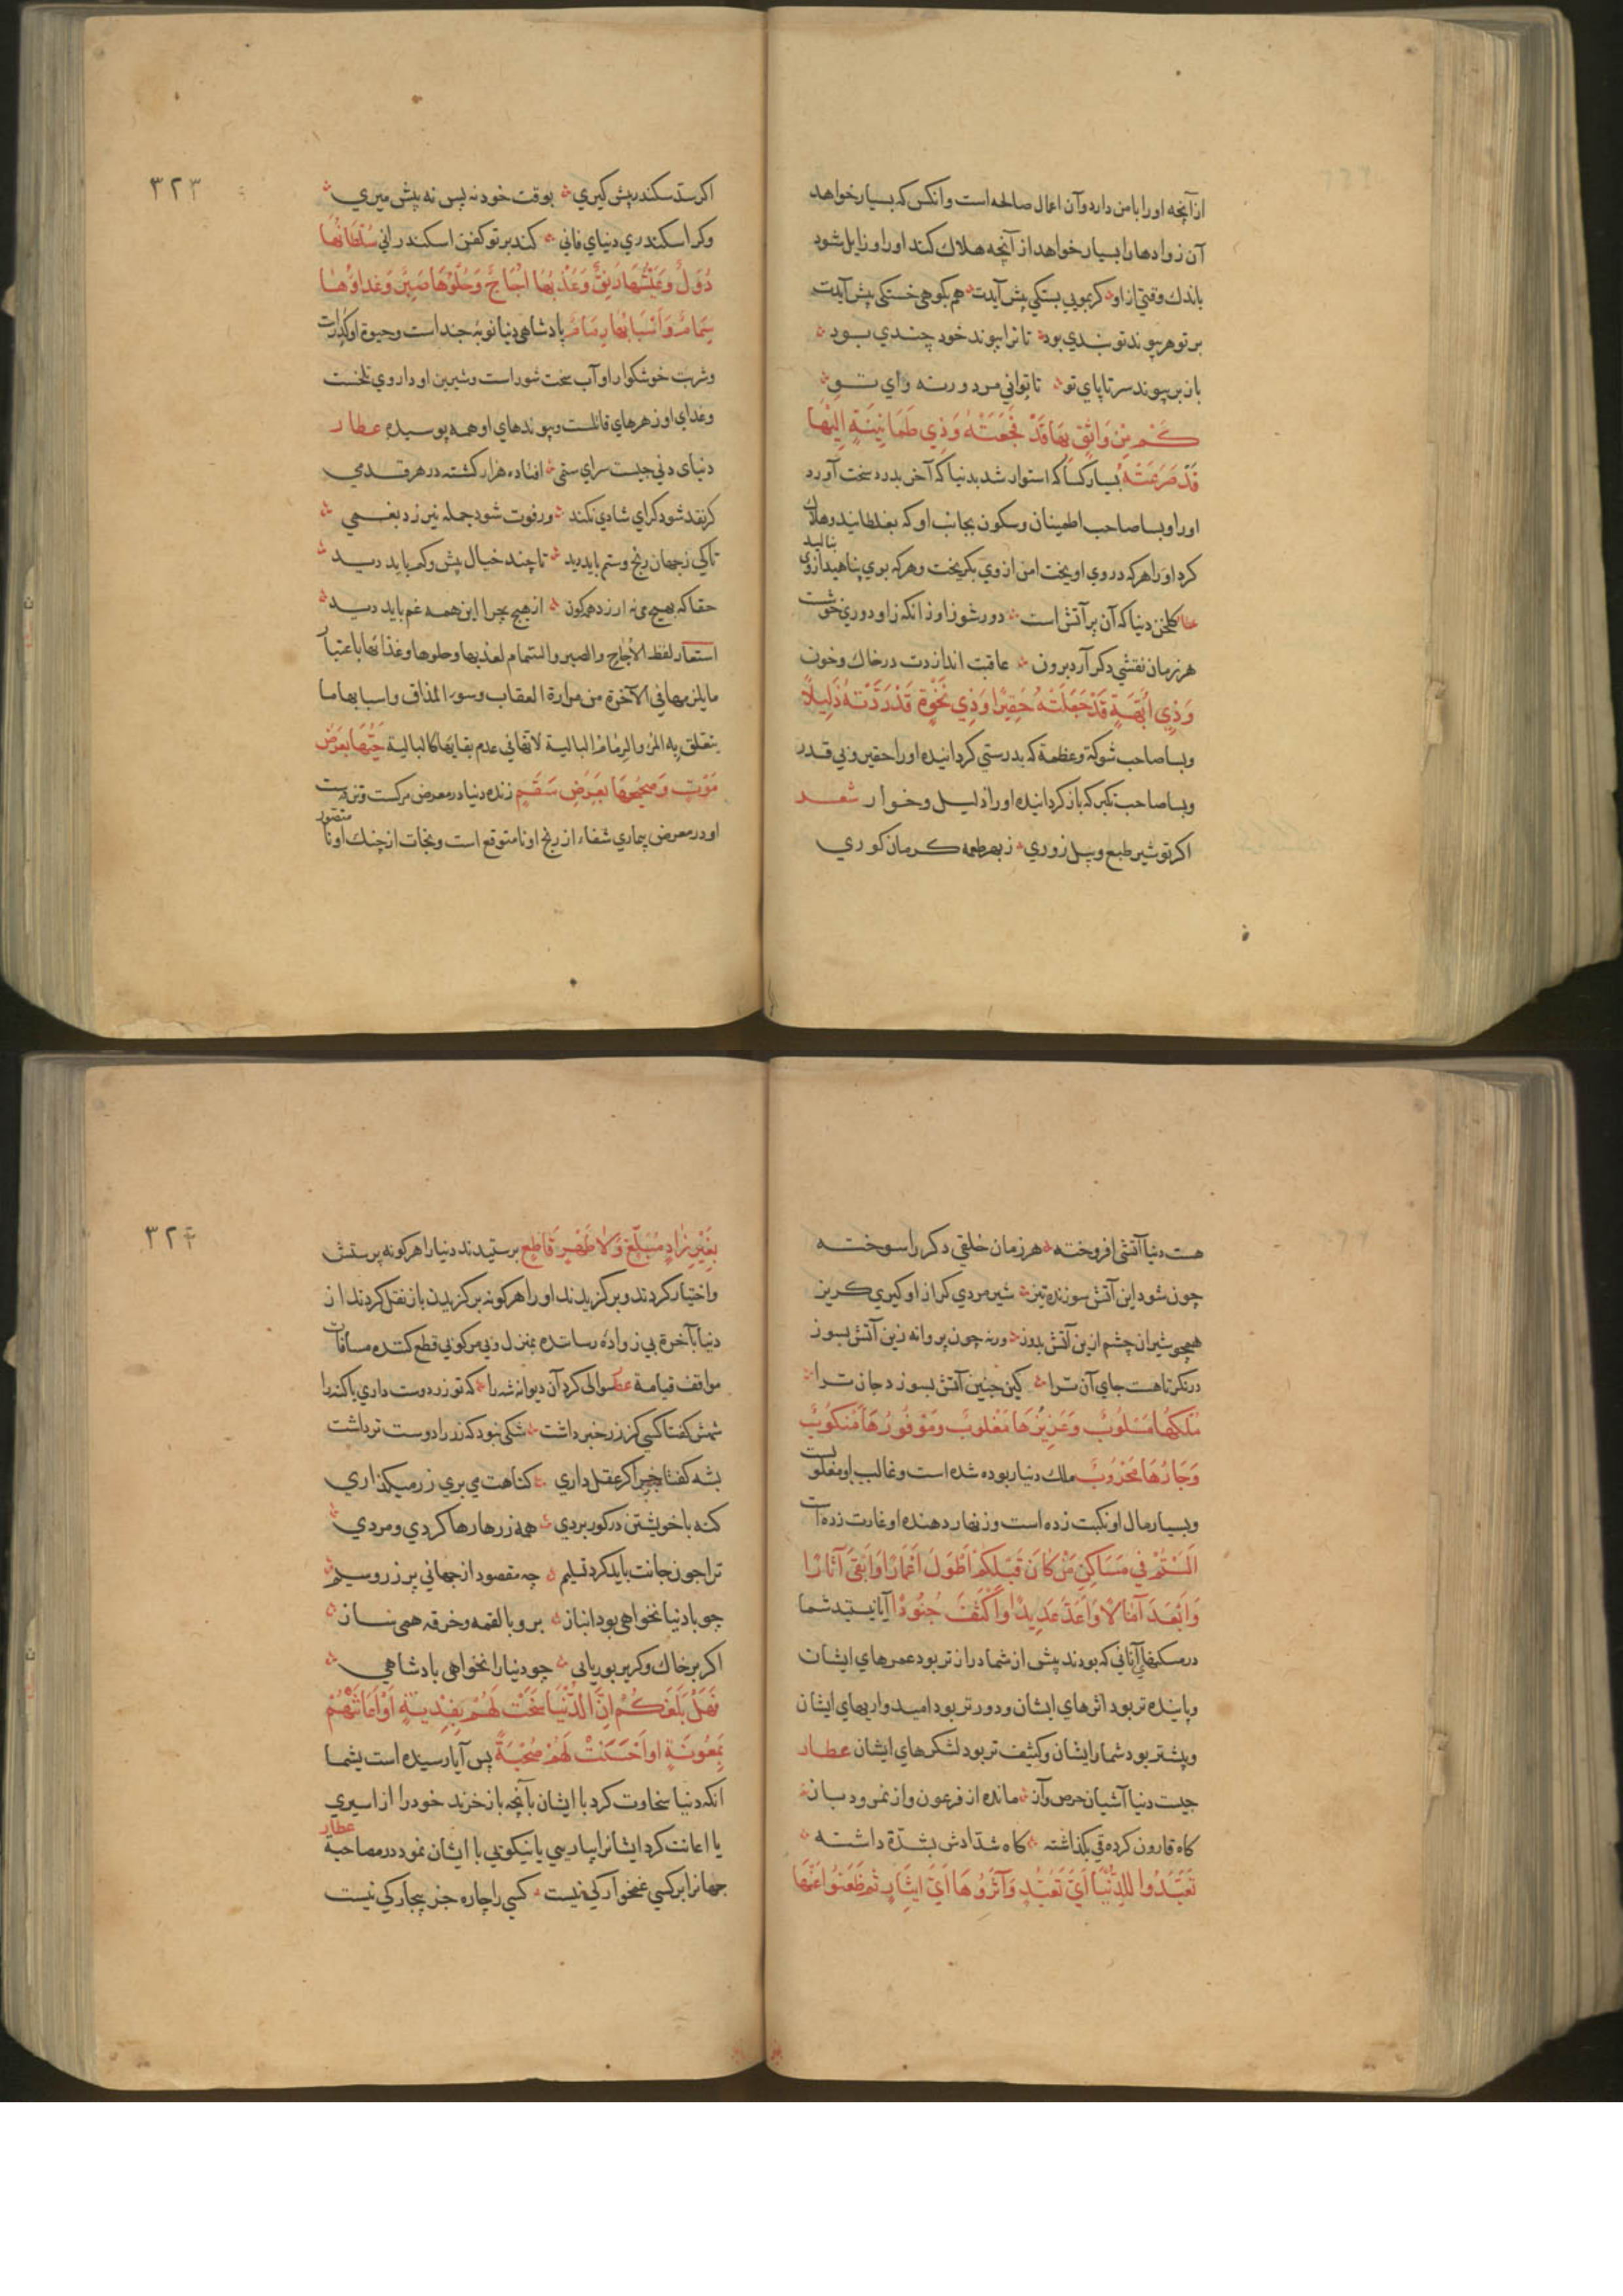 از آنچه او را با من دارد و آن اعمال صالحه است و انکس که بسیار خواهد
آن زوادها را بسیار خواهد از آنچه هلاک کند او را و زایل شود
باندک وقتی از او کر بمویی بستکی پیش آیدت هم بکوهی خستکی پیش آیدت
بر تو هر پیوند تو بندی بود تا ترا پیوند خود چندی بود
باز بر پیوند سر تا پای تو تا توانی مرد ورنه وای تو
كَمْ مِنْ وَاثِقٍ بِهَا قَدْ فَجَعَتْهُ وَذِي طُمَانِينَةٍ اِلَيْهَا
قَدْ صَرَعَتْهُ بسیار کسا که استوار شد بدنیا که آخر بدرد سخت آورد
او را و بسا صاحب اطمینان و سکون بجانب او که بغلطانید و هلاک
کرد او را هر که در وی اویخت امن از وی بکریخت و هر که بوی پناهید از وی بنالید
عطا کلخن دنیا که آن پر آتش است دور شو زاو زانکه زاو دوری خوشست
هر زمان نقشی دکر آرد برون عاقبت اندازدت در خاک و خون
وَذِي اُبَّهَةٍ قَدْ جَعَلَتْهُ حَقِيرًا وَذِي نَخْوَةٍ قَدْ رَدَّتْهُ ذَلِيلًا
و بسا صاحب شوکة و عظمة که بدرستی کردانیده او را حقیر و بی قدر
و بسا صاحب تکبر که باز کردانیده او را ذلیل و خوار شعر
اکر تو شیر طبع و پیل زوری ز بهر طعمه کرمان کوری
٣٢٣
اکر سد سکندر پیش کیری بوقت خود نه پس نه پیش میری
وکر اسکندری دنیای فانی کند بر تو کفن اسکندرانی سُلْطَانُهَا
دُوَلٌ وَعَيْشُهَا رَنِقٌ وَعَذْبُهَا اُجَاجٌ وَحُلْوُهَا صَبِرٌ وَغِذَاؤُهَا
سِمَامٌ وَاَسْبَابُهَا رِمَامٌ پادشاهی دنیا نوبۀ چند است و حیوة او کدرات
و شربت خوشکوار او آب سخت شور است و شیرین او داروی تلخست
و غدای او زهرهای قاتلست و پیوندهای او همه پوسیده عطار
دنیای دنی چیست سرای ستمی افتاده هزار کشته در هر قدمی
کر نقد شود کرای شادی نکند ور فوت شود جمله نیرزد بغمی
تا کی زجهان رنج و ستم باید دید تا چند خیال بیش و کم باید دید
حقا که بهیچ می نه ارزد همه کون از هیچ چرا این همه غم باید دید
استعار لفظ الأجاج والصبر والسمام لعذبها وحلوها وغذائها باعتبار
ما يلزمها في الآخرة من مرارة العقاب وسوء المذاق واسبابها ما
يتعلق به المرء والرمام البالية لأنها في عدم بقائها كالبالية حَيُّهَا بِعَرَضِ
مَوْتٍ وَصَحِيحُهَا بِعَرَضِ سَقَمٍ زنده دنیا در معرض مرکست و تن درست
او در معرض بیماری شفاء از رنج او نا متوقع است و نجات از چنک او نا متصور
هست دنیا آتشی افروخته هر زمان خلقی دکر را سوخته
چون شود این آتش سوزنده تیز شیر مردی کر از او کیری کریز
همچو شیران چشم ازین آتش بدوز ورنه چون پروانه زین آتش بسوز
درنکر تا هست جای آن ترا کین چنین آتش بسوزد جان ترا
مُلْكُهَا مَسْلُوبٌ وَعَزِيزُهَا مَغْلُوبٌ وَمَوْفُورُهَا مَنْكُوبٌ
وَجَارُهَا مَحْرُوبٌ ملک دنیا ربوده شده است و غالب او مغلوبست
و بسیار مال او نکبت زده است و زنهار دهنده او غارت زده است
اَلَسْتُمْ فِي مَسَاكِنِ مَنْ كَانَ قَبْلَكُمْ اَطْوَلَ اَعْمَارًا وَاَبْقَى آثَارًا
وَاَبْعَدَ آمَالًا وَاَعَدَّ عَدِيدًا وَاَكْثَفَ جُنُودًا آیا نیستید شما
در مسکنهای آنانی که بودند پیش از شما درازتر بود عمرهای ایشان
و پاینده تر بود اثرهای ایشان و دورتر بود امیدواریهای ایشان
و بیشتر بود شمار ایشان و کثیف تر بود لشکرهای ایشان عطار
چیست دنیا آشیان حرص و آز مانده از فرعون و از نمرود باز
کاه قارون کرده قی بکذاشته کاه شدادش بشدة داشته
تَعَبَّدُوا لِلدُّنْيَا اَيَّ تَعَبُّدٍ وَآثَرُوهَا اَيَّ اِيثَارٍ ثُمَّ ظَعَنُوا عَنْهَا
٣٢٤
بِغَيْرِ زَادٍ مُبَلِّغٍ وَلَا ظَهْرٍ قَاطِعٍ پرستیدند دنیا را هر کونه پرستش
و اختیار کردند و برکزیدند او را هر کونه برکزیدن باز نقل کردند از
دنیا بآخرة بی زواده رسانده بمنزل و بی مرکوبی قطع کننده مسافات
مواقف قیامة عطا سوالی کرد آن دیوانه شه را که تو زر دوست داری یا کنه را
شهش کفتا کسی کز زر خبر داشت شکی نبود که زر را دوست تر داشت
بشه کفتا چرا کر عقل داری کناهت می بری زر میکذاری
کنه با خویشتن در کور بردی همه زرها رها کردی و مردی
ترا چون جانت باید کرد تسلیم چه مقصود از جهانی پر زر و سیم
چو با دنیا نخواهی بود انباز برو با لقمه و خرقه همی ساز
اکر بر خاک و کر بر بوریایی چو دنیا را نخواهی پادشاهی
فَهَلْ بَلَغَكُمْ اَنَّ الدُّنْيَا سَخَتْ لَهُمْ بِفِدْيَةٍ اَوْ اَعَانَتْهُمْ
بِمَعُونَةٍ اَوْ اَحْسَنَتْ لَهُمْ صُحْبَةً پس آیا رسیده است بشما
انکه دنیا سخاوت کرد با ایشان بآنچه باز خرند خود را از اسیری
یا اعانت کرد ایشانرا بیاریی یا نیکویی با ایشان نمود در مصاحبة عطار
جهانرا بر کسی غمخوارکی نیست کسی را چاره جز بیچارکی نیست